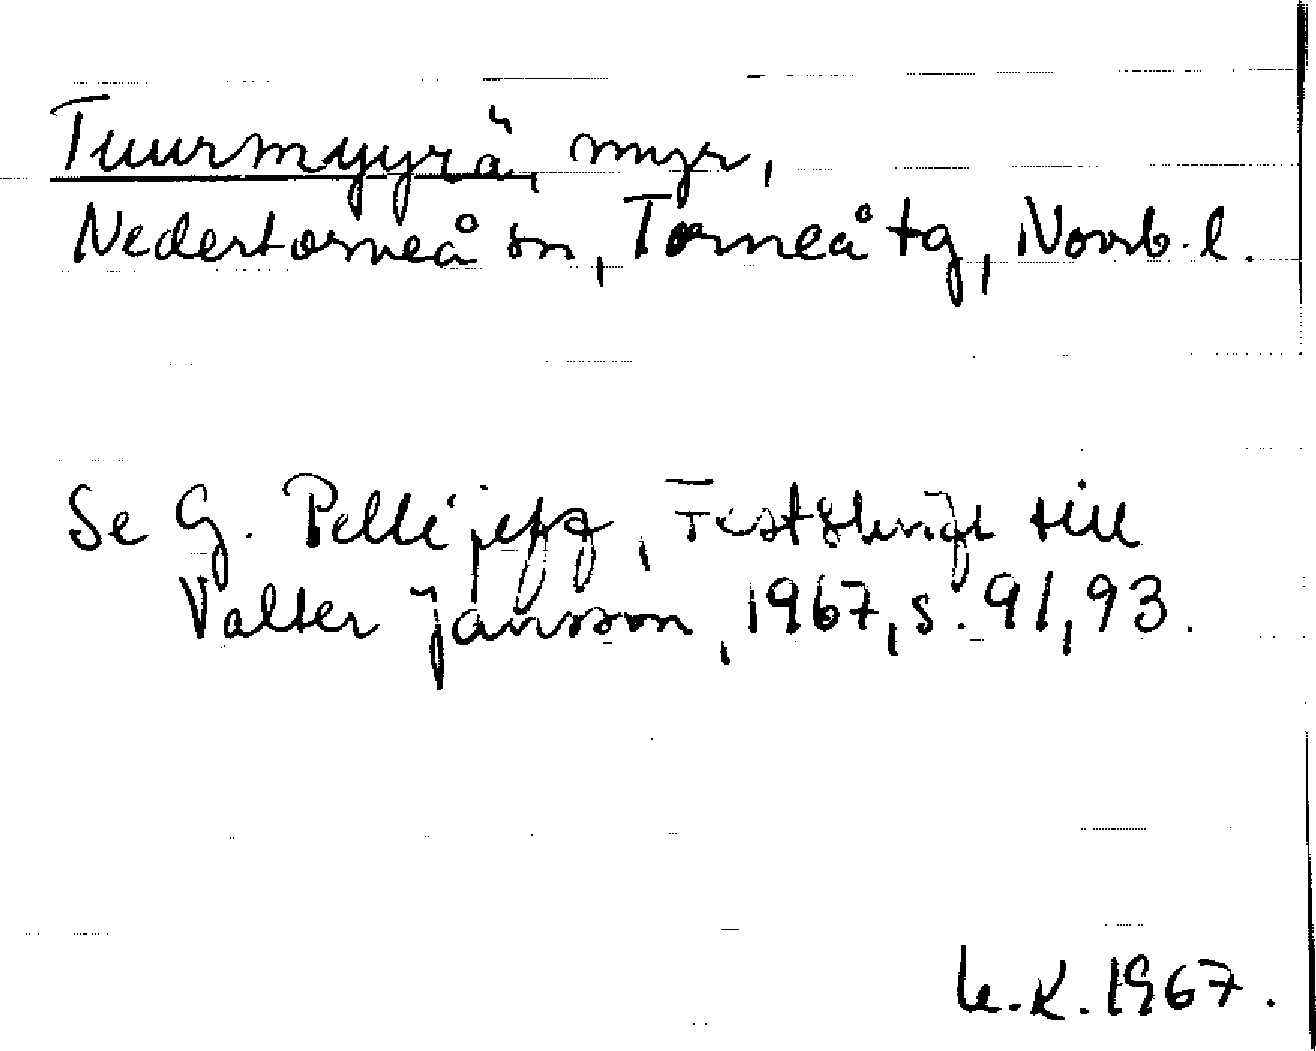 Tuurmyyrä, myr,
Nedertorneå sn, Torneå tg, Norrb. l.
Se G. Pellijeff, Festskrift till
Valter Jansson, 1967, s. 91, 93.
K. 1967.